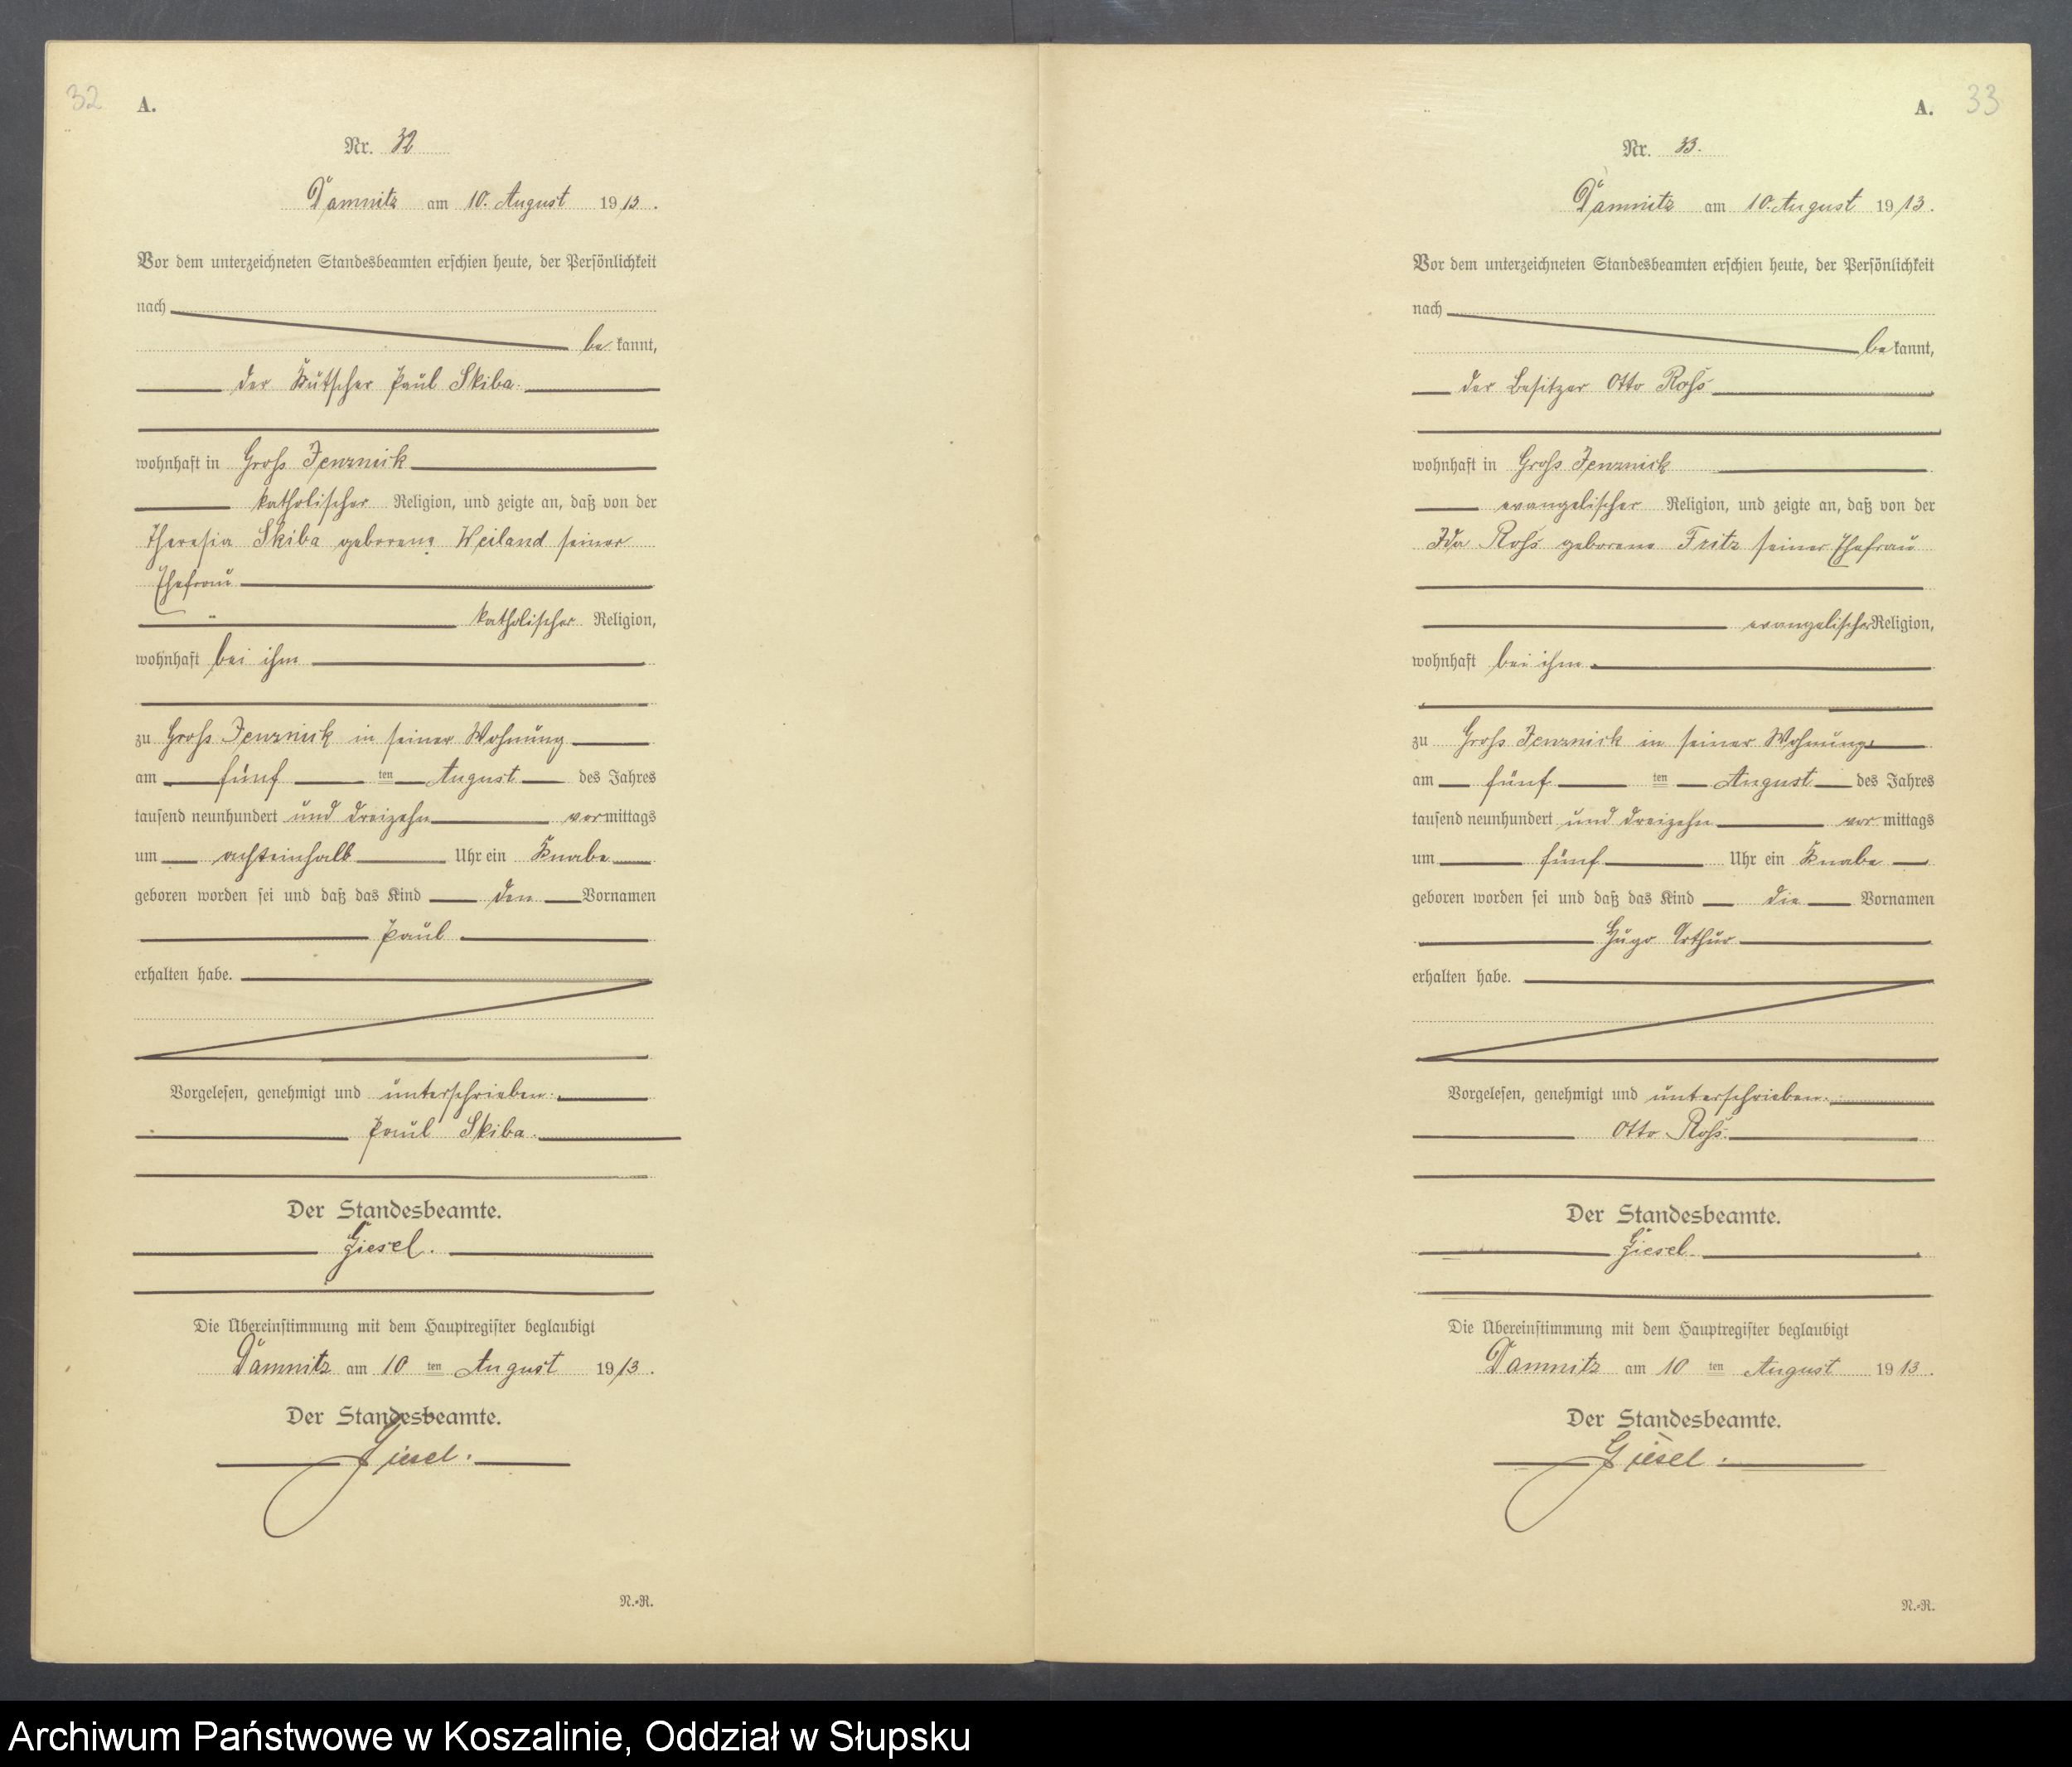 32
A.
Nr. 32
Damnitz am 10. August 1913.
Vor dem unterzeichneten Standesbeamten erschien heute, der Persönlichkeit
nach
be kannt,
der Kutscher Paul Skiba.
wohnhaft in Groß Jenznick
katholischer Religion, und zeigte an, daß von der
Theresia Skiba geborene Weiland seiner
Ehefrau
katholischer Religion,
wohnhaft bei ihm
zu Groß Jenznick in seiner Wohnung
am fünf ten August des Jahres
tausend neunhundert und dreizehn vormittags
um achteinhalb Uhr ein Knabe
geboren worden sei und daß das Kind den Vornamen
Paul
erhalten habe.
Vorgelesen, genehmigt und unterschrieben.
Paul Skiba.
Der Standesbeamte.
Giesel.
Die Übereinstimmung mit dem Hauptregister beglaubigt
Damnitz am 10 ten August 1913.
Der Standesbeamte.
Giesel.
N.-R.
A. 33
Nr. 33.
Damnitz am 10. August 1913.
Vor dem unterzeichneten Standesbeamten erschien heute, der Persönlichkeit
nach
be kannt,
der Besitzer Otto Roß
wohnhaft in Groß Jenznick
evangelischer Religion, und zeigte an, daß von der
Ida Roß geborene Fritz seiner Ehefrau
evangelischer Religion,
wohnhaft bei ihm
zu Groß Jenznick in seiner Wohnung
am fünf ten August des Jahres
tausend neunhundert und dreizehn vor mittags
um fünf Uhr ein Knabe
geboren worden sei und daß das Kind die Vornamen
Hugo Arthur
erhalten habe.
Vorgelesen, genehmigt und unterschrieben.
Otto Roß.
Der Standesbeamte.
Giesel.
Die Übereinstimmung mit dem Hauptregister beglaubigt
Damnitz am 10 ten August 1913.
Der Standesbeamte.
Giesel.
N.-R.
Archiwum Państwowe w Koszalinie, Oddział w Słupsku